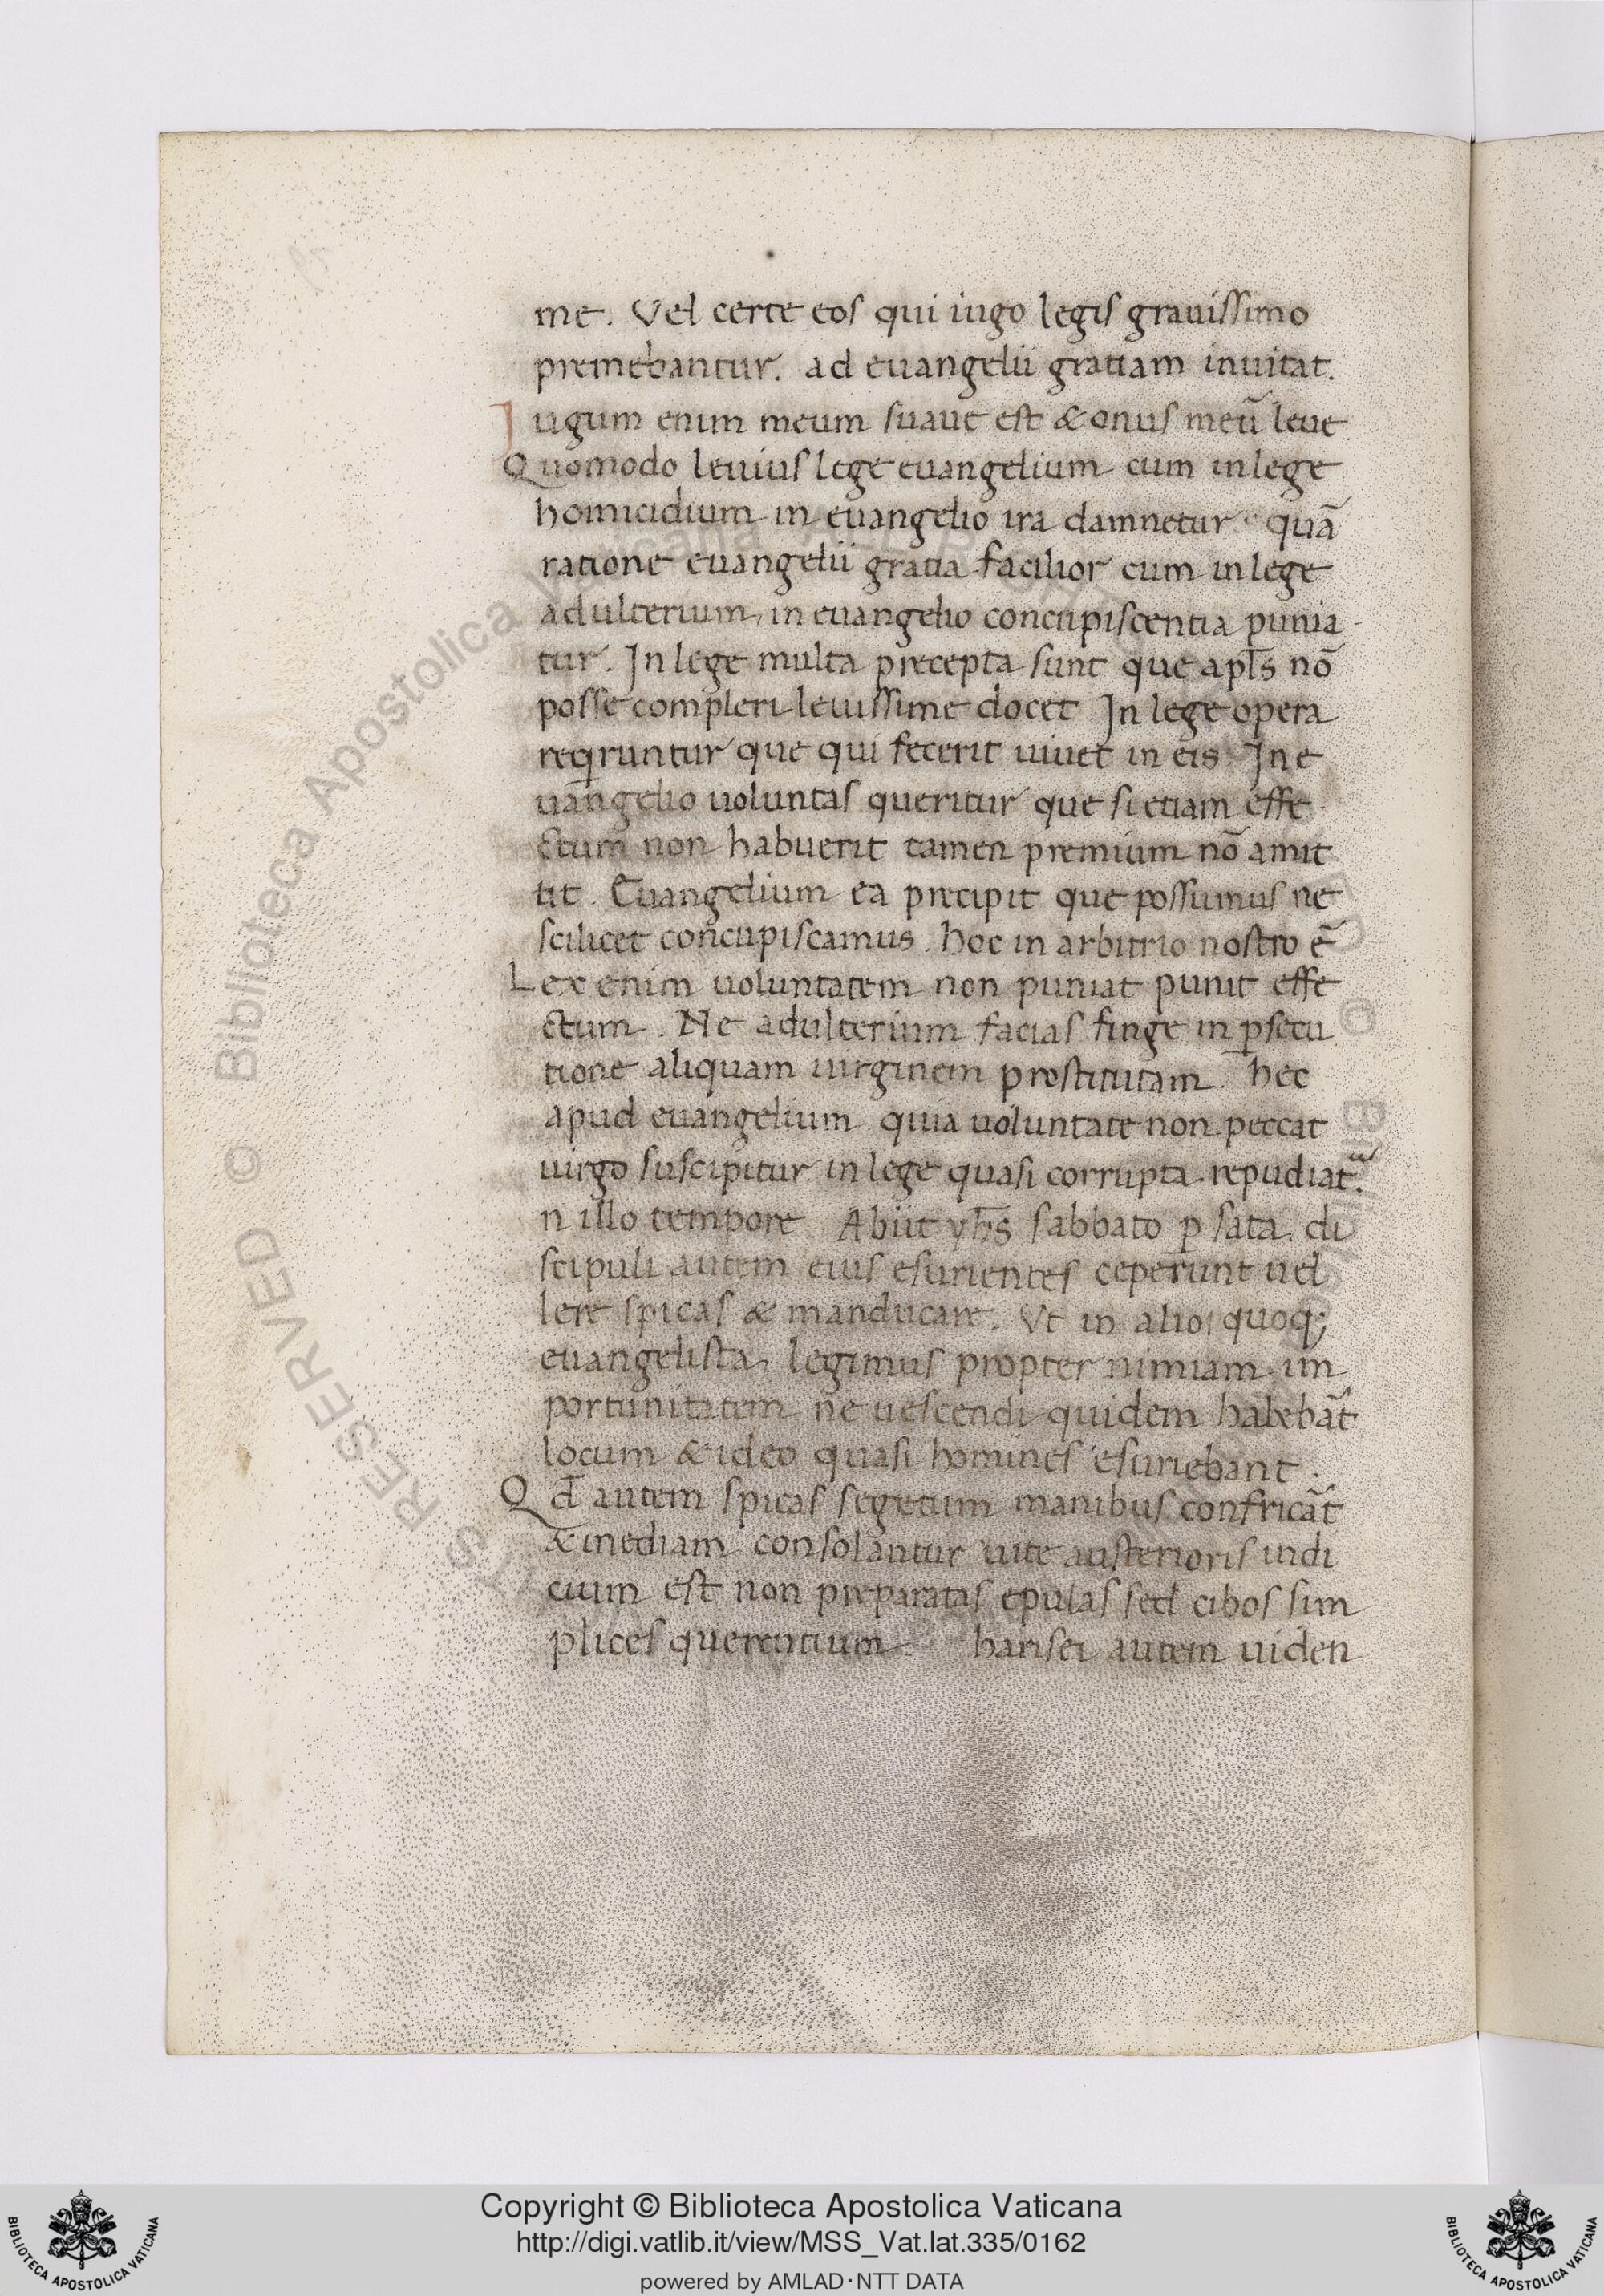 me. Vel certe eos qui iugo legis grauissimo
premebantur. ad euangelii gratiam inuitat.
Iugum enim meum suaue est & onus meū leue
Quomodo leuius lege euangelium cum in lege
homicidium in euangelio ira damnetur. quā
ratione euangelii gratia facilior cum in lege
adulterium, in euangelio concupiscentia punia
tur. In lege multa precepta sunt que apl̄s nō
posse compleri leuissime docet In lege opera
reqiruntur que qui fecerit uiuet in eis. In e
uangelio uoluntas queritur que si etiam effe
ctum non habuerit tamen premium nō amit
tit. Euangelium ea precipit que possumus ne
scilicet concupiscamus. hoc in arbitrio nostro ē
Lex enim uoluntatem non puniat punit effe
ctum. Ne adulterium facias finge in p̱secu
tione aliquam uirginem prostitutam. hec
apud euangelium quia uoluntate non peccat
uirgo suscipitur in lege quasi corrupta repudiat᷑.
n illo tempore Abiit yh̄s sabbato p̱ sata. di
scipuli autem eius esurientes ceperunt uel
lere spicas & manducare. Vt in alio quoq;
euangelista legimus propter nimiam im
portunitatem ne uescendi quidem habebāt
locum & ideo quasi homines esuriebant.
Qd̄ autem spicas segetum manibus confricāt
& inediam consolantur uite austerioris indi
cium est non preparatas epulas sed cibos sim
plices querentium. harisei autem uiden
Copyright © Biblioteca Apostolica Vaticana
http://digi.vatlib.it/view/MSS_Vat.lat.335/0162
powered by AMLAD·NTT DATA
BIBLIOTECA APOSTOLICA VATICANA
BIBLIOTECA APOSTOLICA VATICANA